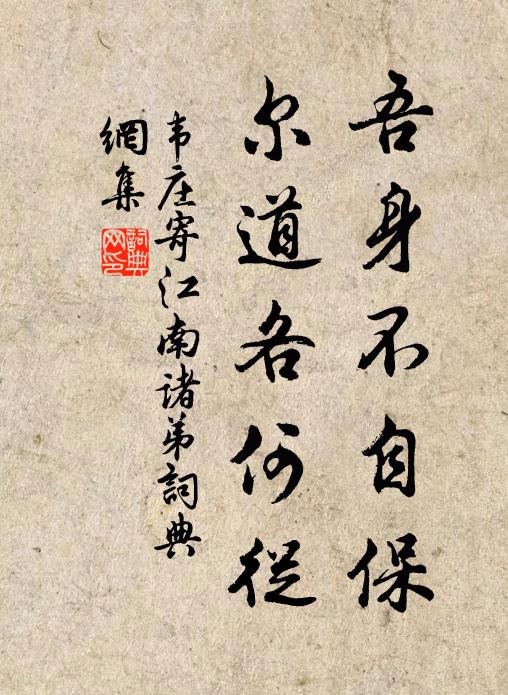 吾身不自保
尔道各何從
韦庄寄江南诸弟詞典
網集
詞典网印